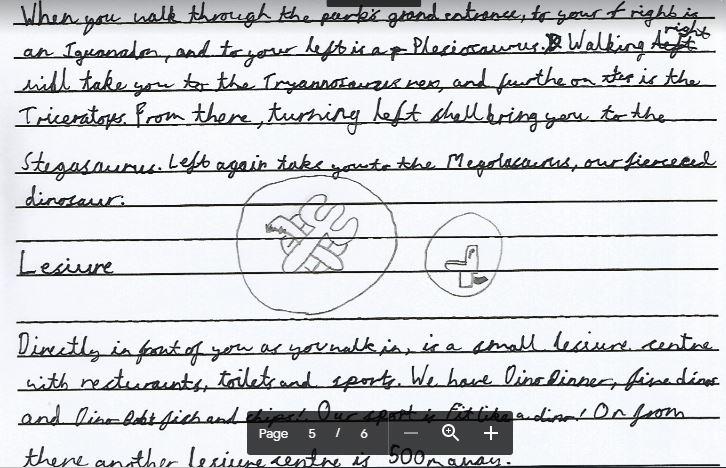 When you walk through the park's grand entrance, to your right is
an Iguanadon, and to your left is a Plesiosaurus. Walking right
will take you to the Tryannosaurus rex, and furthe on is the
Triceratops. From there, turning left shall bring you to the
Stegasaurus. Left again takes you to the Megolasaurus, our fierceced
dinosaur.
Lesiure
Directly in front of you as you walk in, is a small lesiure centre
with resturaunts, toilets and sports. We have Dino Dinner, fine dinos
and Dino Bob's fish and chips! Our sport is Fit like a dino! Or from
there another lesiure centre is 500m away.
Page 5 / 6